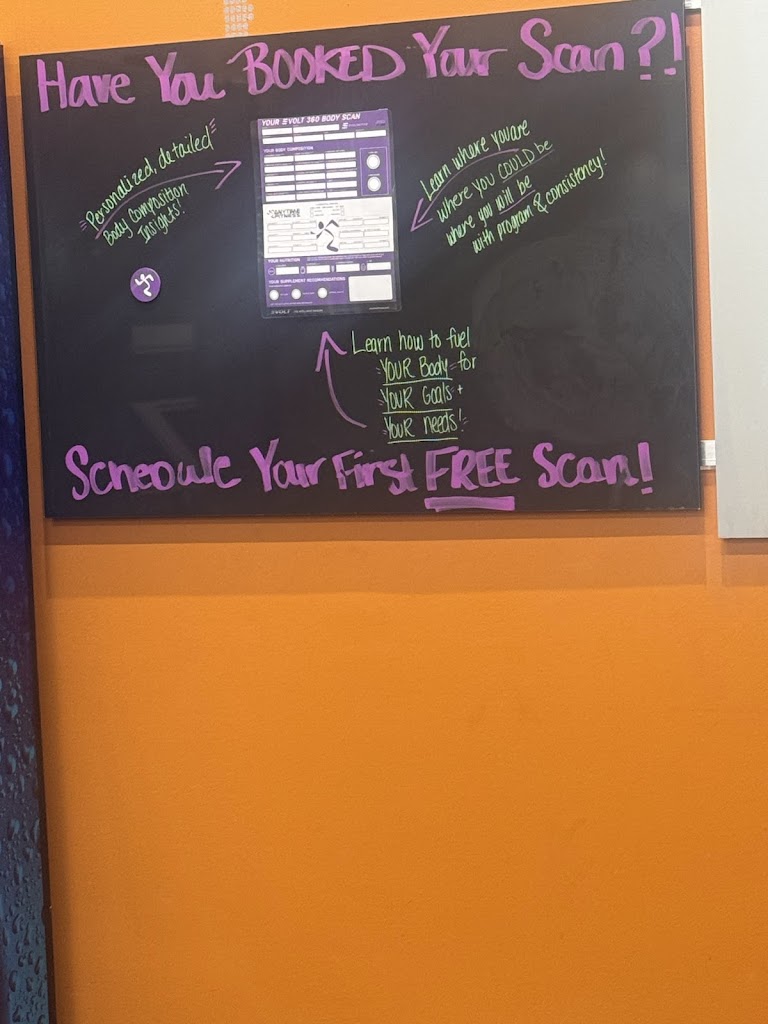 Have You BOOKED Your Scan?!
Personalized, detailed
Body Composition
Insights!
YOUR EVOLT 360 BODY SCAN
YOUR BODY COMPOSITION
ANYTIME
FITNESS
YOUR NUTRITION
YOUR SUPPLEMENT RECOMMENDATIONS
EVOLT
Learn where you are
where you COULD be
where you will be
with program & consistency!
Learn how to fuel
YOUR Body for
YOUR Goals +
YOUR needs!
Schedule Your First FREE Scan!